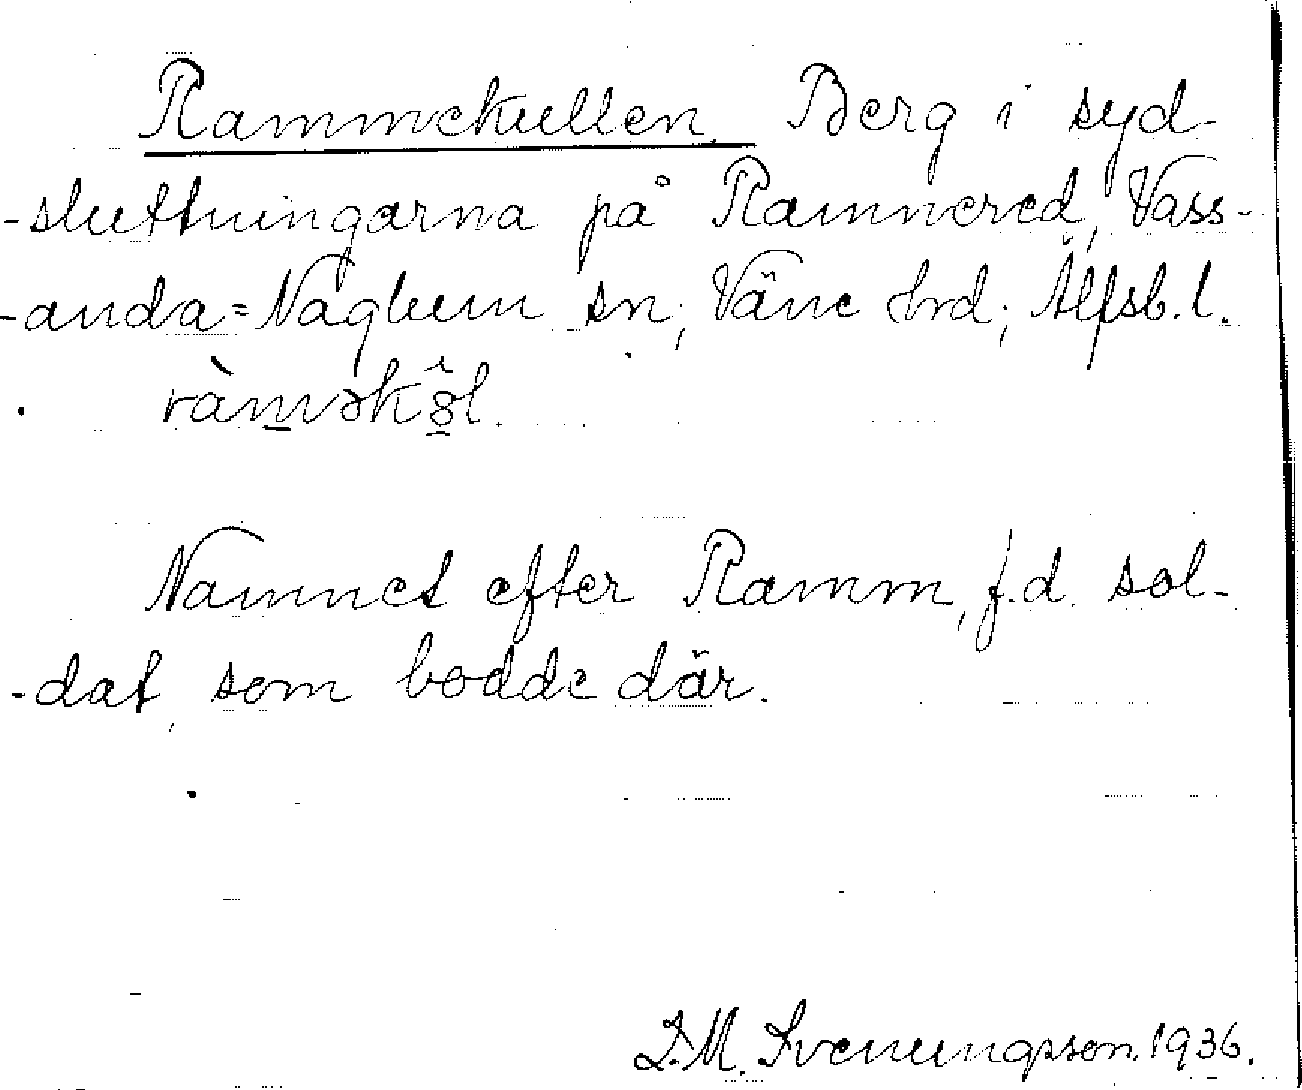 Rammekullen. Berg i syd-
-sluttningarna på Ramnered, Vass-
-anda=Naglum sn; Väne hrd; Älfsb. l.
ràm̲əkö̂l.
Namnet efter Ramm, f.d. sol-
-dat, som bodde där.
D.M. Svenungsson. 1936.